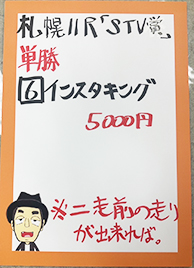 札幌11R「STV賞」
単勝
6 インスタキング
5000円
※二走前の走り
が出来れば。